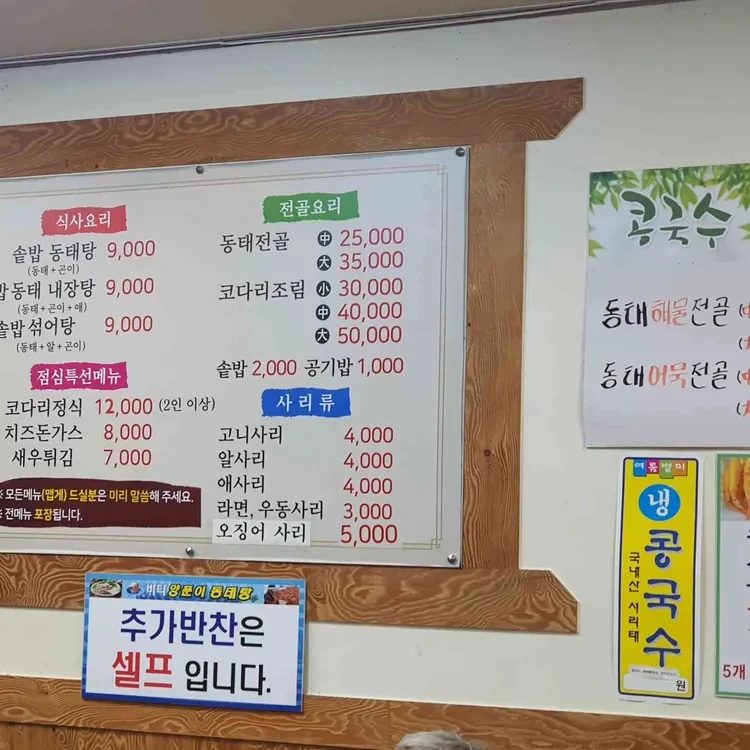 식사요리
솥밥 동태탕 9,000
(동태+곤이)
밥동태 내장탕 9,000
(동태+곤이+애)
솥밥 섞어탕 9,000
(동태+알+곤이)
점심특선메뉴
코다리정식 12,000 (2인 이상)
치즈돈가스 8,000
새우튀김 7,000
※ 모든메뉴(맵게) 드실분은 미리 말씀해 주세요.
※ 전메뉴 포장됩니다.
전골요리
동태전골 中 25,000
大 35,000
코다리조림 小 30,000
中 40,000
大 50,000
솥밥 2,000 공기밥 1,000
사리류
고니사리 4,000
알사리 4,000
애사리 4,000
라면, 우동사리 3,000
오징어 사리 5,000
양푼이 동태탕
추가반찬은
셀프 입니다.
콩국수
동태해물전골
동태어묵전골
여름별미
냉콩국수
국내산 서리태
원
5개